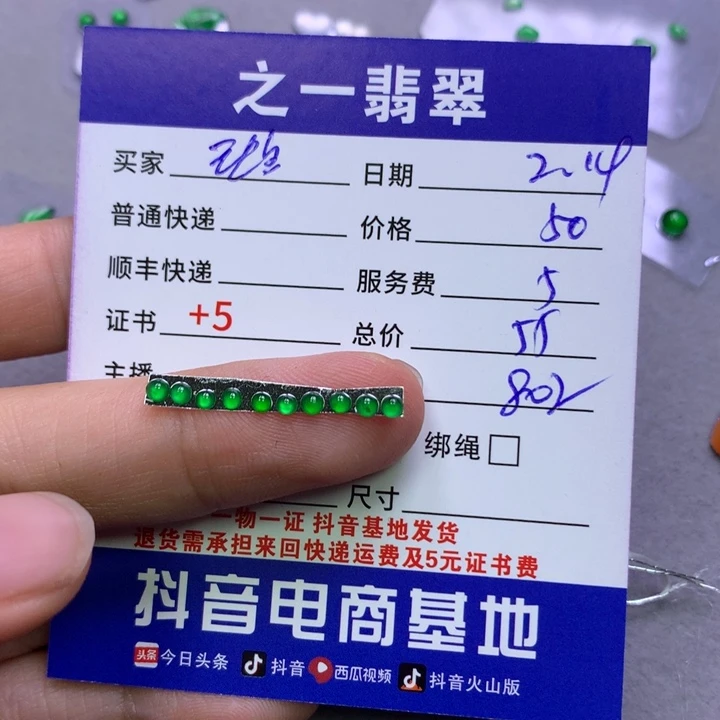 之一翡翠
买家 日期 2.14
普通快递 价格 50
顺丰快递 服务费 5
证书 +5 总价 55
主播 802
绑绳
尺寸
一物一证 抖音基地发货
退货需承担来回快递运费及5元证书费
抖音电商基地
头条 今日头条 抖音 西瓜视频 抖音火山版